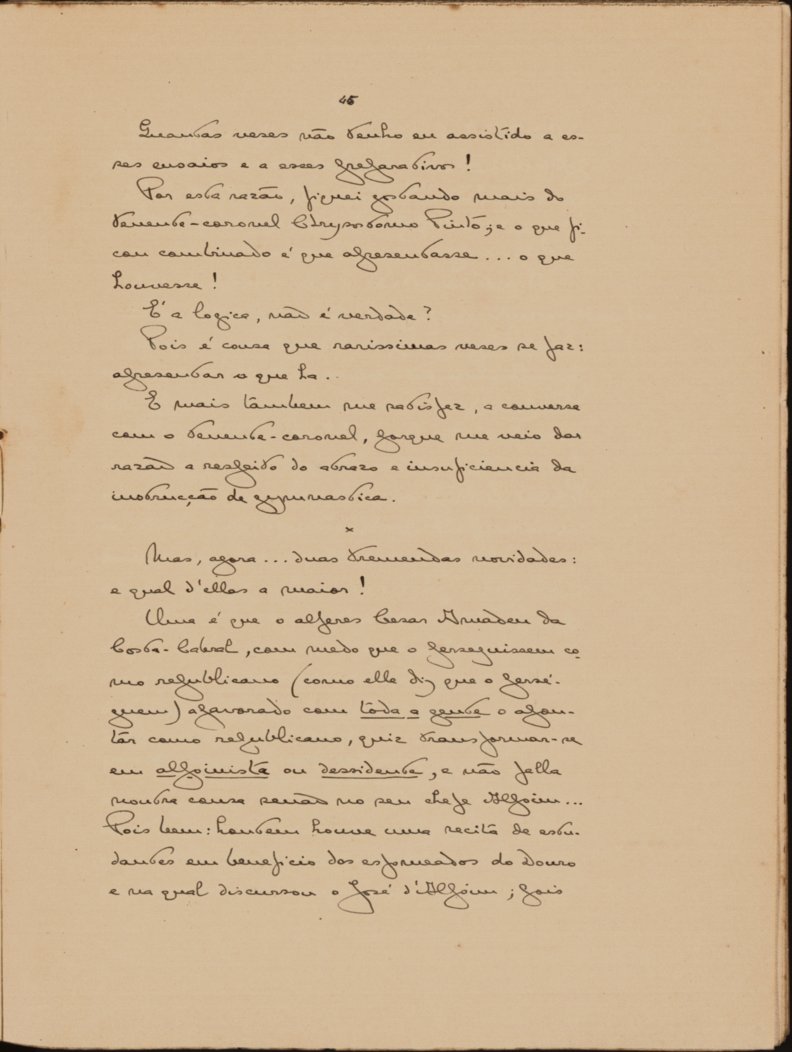 45
Quantas veses não tenho eu assistido a es-
ses ensaios e a esses preparativos!
Por esta razão, fiquei gostando mais do
tenente-coronel Chrysostomo Pinto; e o que fi-
cou combinado é que apresentasse... o que
houvesse!
É a logica, não é verdade?
Pois é cousa que rarissimas veses se faz:
apresentar o que ha..
E mais tambem me satisfez, a conversa
com o tenente-coronel, porque me veio dar
razão a respeito do atrazo e insuficiencia da
instrucção de gymnastica.
×
Mas, agora... duas tremendas novidades:
e qual d'ellas a maior!
Uma é que o alferes Cesar Amadeu da
Costa-Cabral, com medo que o perseguissem co-
mo republicano (como elle diz que o persé-
guem) apavorado com tôda a gente o apon-
tár como republicano, quiz transformar-se
em alpoinista ou dessidente, e não falla
noutra cousa senão no seu chefe Alpoim...
Pois bem: hontem houve uma recita de estu-
dantes em beneficio dos esfomeados do Douro
e na qual discursou o José d'Alpoim; pois